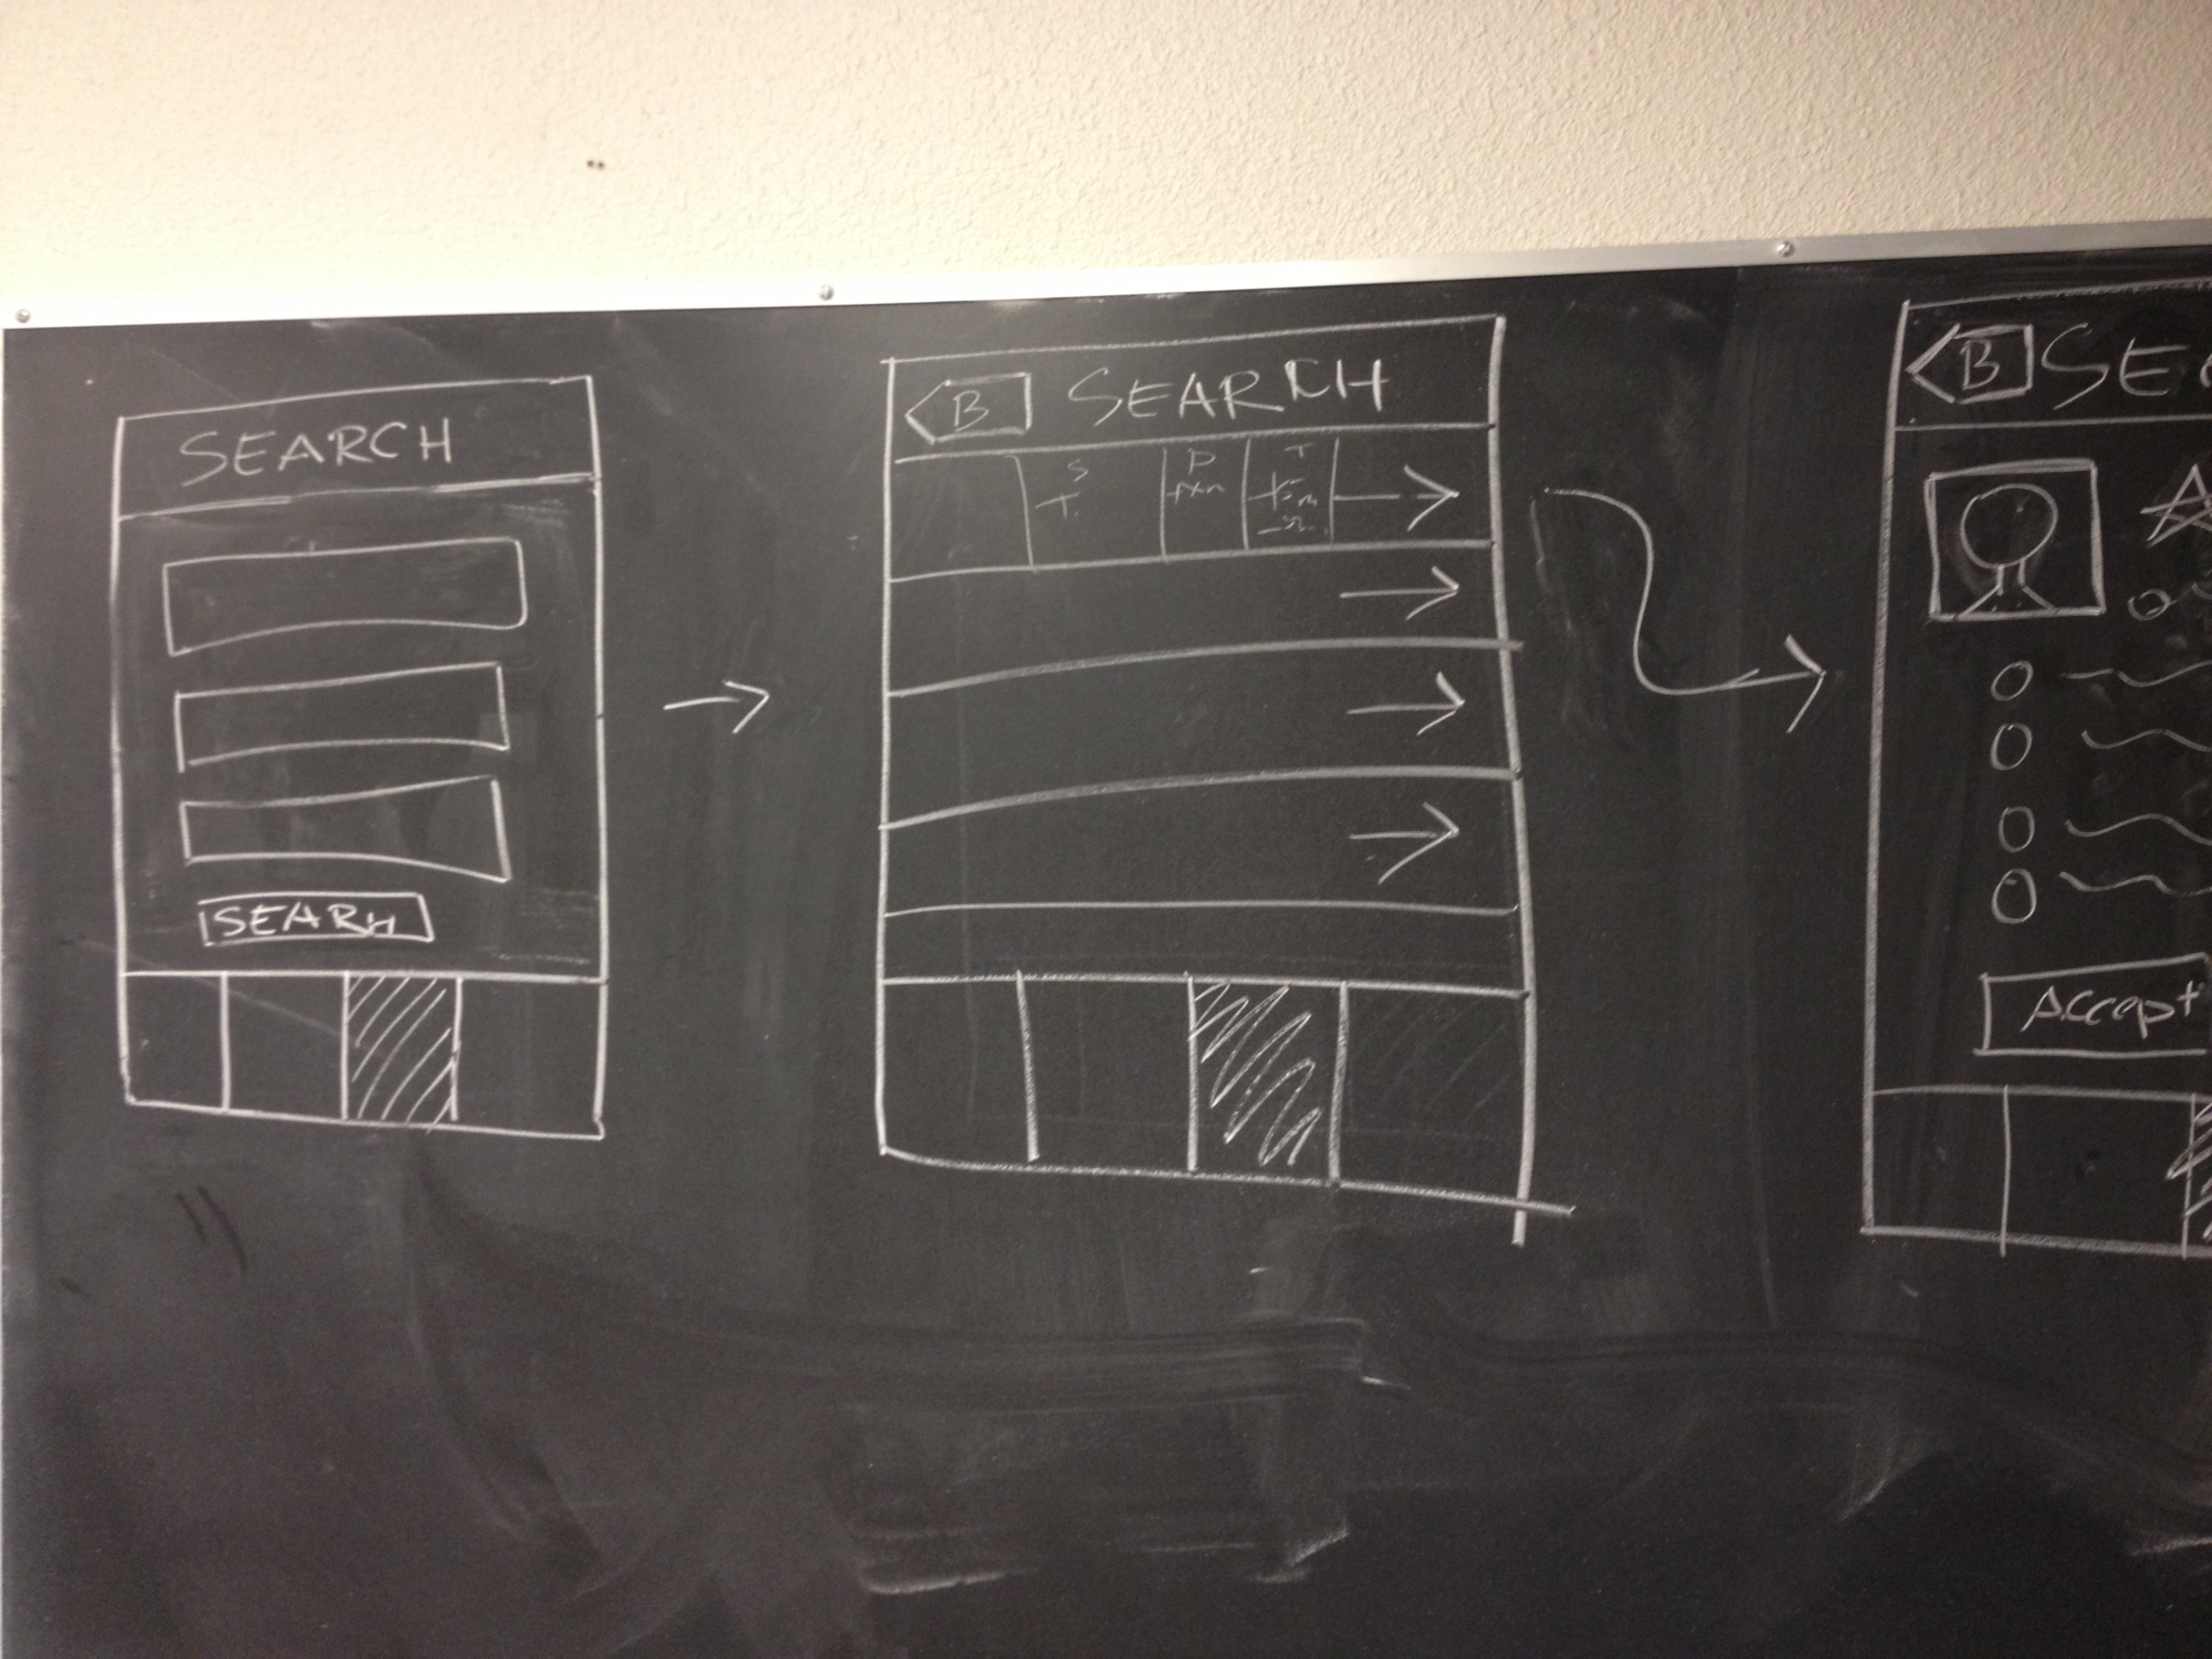 SEARCH
SEARH
B SEARCH
S
T.
D
T
B SE
Accept